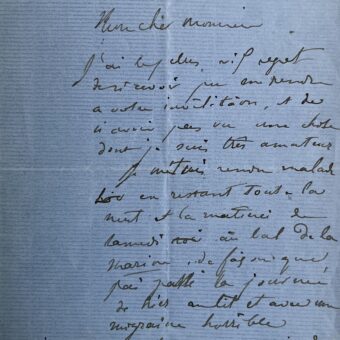 Mon cher monsieur
J'ai le plus vif regret
de n'avoir pu me rendre
a votre invitation, et de
n'avoir pas vu une chose
dont je suis très amateur
Je m'étais rendu malade
en restant toute la
nuit et la matinée de
samedi soir au bal de la
marion, de façon que
j'ai passé la journée
de hier au lit et avec une
migraine horrible